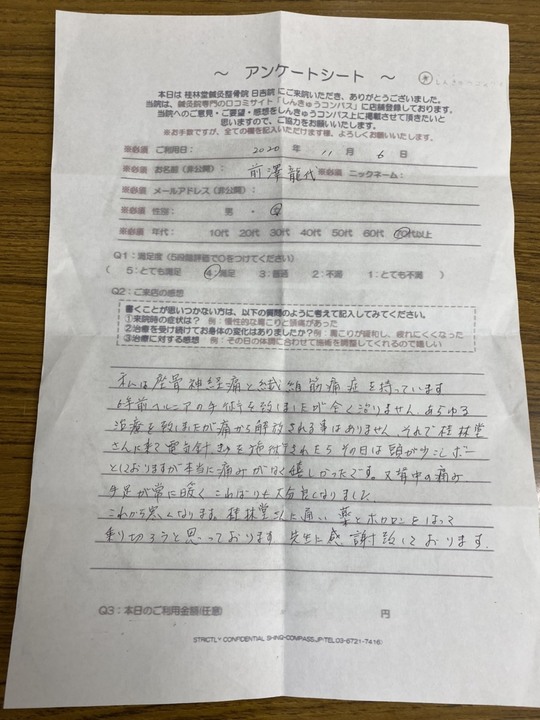 ～ アンケートシート ～
本日は 桂林堂鍼灸整骨院 日吉院 にご来院いただき、ありがとうございました。
当院は、鍼灸院専門の口コミサイト「しんきゅうコンパス」に店舗登録しております。
当院へのご意見・ご要望・感想をしんきゅうコンパス上に掲載させて頂きたいと
思いますので、ご協力をお願いいたします。
※お手数ですが、全ての欄を記入いただけます様、よろしくお願いいたします。
※必須 ご利用日： 2020 年 11 月 6 日
※必須 お名前（非公開）： 前澤龍代 ※必須 ニックネーム：
※必須 メールアドレス（非公開）：
※必須 性別： 男 ・ 女
※必須 年代： 10代 20代 30代 40代 50代 60代 70代以上
Q1：満足度（5段階評価で○をつけてください）
（ 5：とても満足 4：満足 3：普通 2：不満 1：とても不満 ）
Q2：ご来店の感想
書くことが思いつかない方は、以下の質問のように考えて記入してみてください。
①来院時の症状は？ 例：慢性的な肩こりと頭痛があった
②治療を受け続けてお身体の変化はありましたか？ 例：肩こりが緩和し、疲れにくくなった
③治療に対する感想 例：その日の体調に合わせて施術を調整してくれるので嬉しい
私は座骨神経痛と繊維筋痛症を持っています
6年前ヘルニアの手術を致しましたが全く治りません あらゆる
治療を致しましたが痛から解放される事はありません それで桂林堂
さんに来て電気針 を施術されたら その日は頭が少しボー
としておりますが本当に痛みがなく嬉しかったです。又背中の痛み
手足が常に暖く こわばりも大分良くなりました
これから寒くなります。桂林堂さんに通い 薬とホカロンをはって
乗り切ろうと思っております 先生に感謝致しております.
Q3：本日のご利用金額(任意） 円
STRICTLY CONFIDENTIAL SHINQ-COMPASS.JP-TEL03-6721-7416)